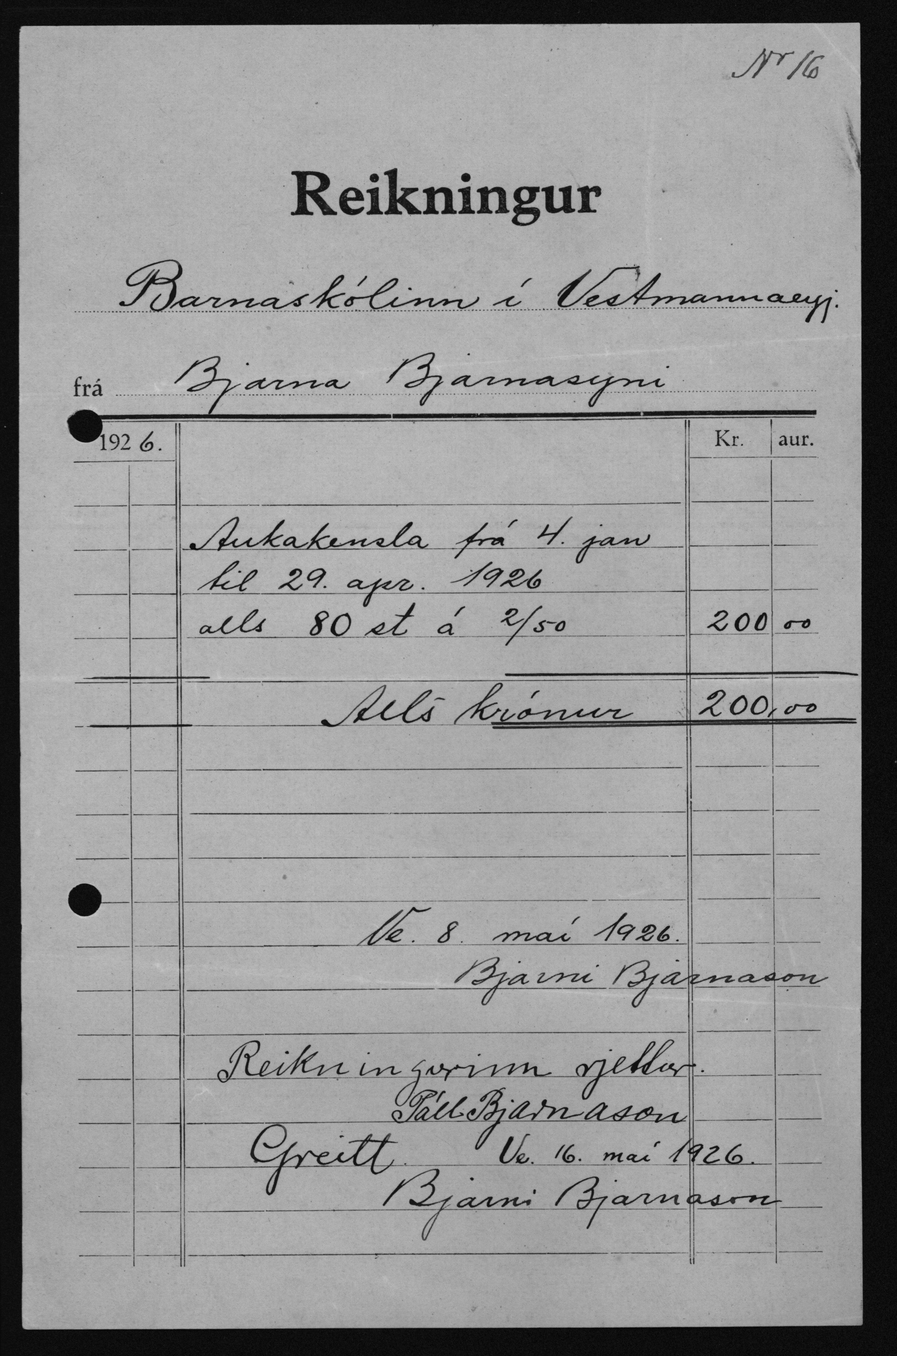 Nr 16
Reikningur
Barnaskólinn í Vestmannaeyj.
frá Bjarna Bjarnasyni
1926. Kr. aur.
Aukakensla frá 4. jan
til 29. apr. 1926
alls 80 st á 2/50 200 00
Alls krónur 200,00
Ve. 8. maí 1926.
Bjarni Bjarnason
Reikningurinn rjettur.
Páll Bjarnason
Greitt. Ve. 16. maí 1926.
Bjarni Bjarnason